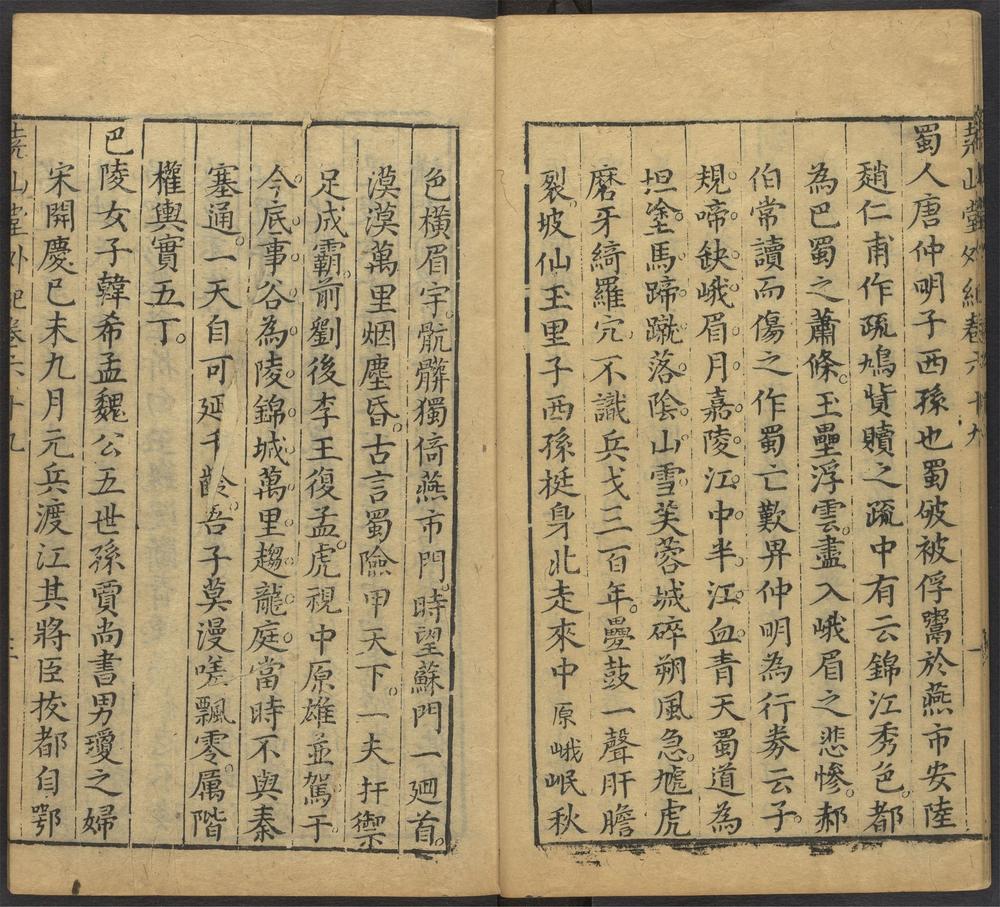 堯山堂外紀卷六十九
蜀人唐仲明子西孫也蜀破被俘鬻於燕市安陸
趙仁甫作疏鳩貲贖之疏中有云錦江秀色都
為巴蜀之蕭條玉壘浮雲盡入峨眉之悲慘郝
伯常讀而傷之作蜀亡歎畀仲明為行券云子
規啼缺峨眉月嘉陵江中半江血青天蜀道為
坦塗馬蹄蹴落陰山雪芙蓉城碎朔風急虓虎
磨牙綺羅穴不識兵戈三百年疊鼓一聲肝膽
裂坡仙玉里子西孫挺身北走來中原峨岷秋
色橫眉宇骯髒獨倚燕市門時望蘇門一廻首
漠漠萬里烟塵昏古言蜀險甲天下一夫扞禦
足成霸前劉後李王復孟虎視中原雄並駕于
今底事谷為陵錦城萬里趨龍庭當時不與秦
塞通一天自可延千齡吾子莫漫嗟飄零厲階
權輿實五丁
巴陵女子韓希孟魏公五世孫賈尚書男瓊之婦
宋開慶巳未九月元兵渡江其將臣抜都自鄂
堯山堂外紀卷六十九